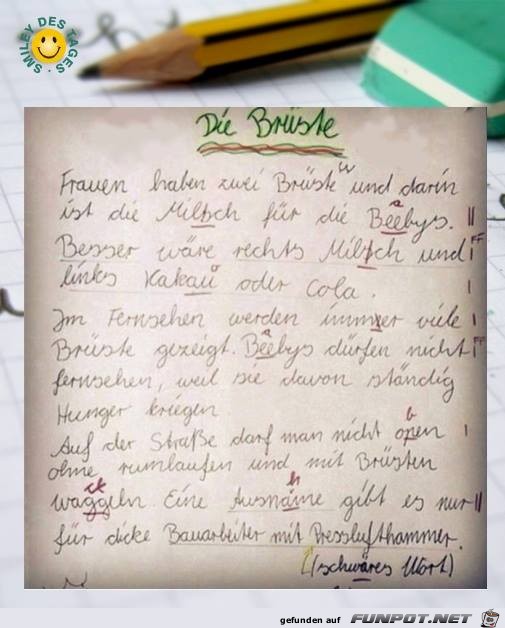 SMILEY DES TAGES
Die Brüste
Frauen haben zwei Brüste und darin
ist die Miltsch für die Beebys.
Besser wäre rechts Miltsch und
links Kakau oder Cola.
Im Fernsehen werden immer viele
Brüste gezeigt. Beebys dürfen nicht
fernsehen, weil sie davon ständig
Hunger kriegen.
Auf der Straße darf man nicht open
ohne rumlaufen und mit Brüsten
waggeln. Eine Ausname gibt es nur
für dicke Bauarbeiter mit Presslufthammer.
(schwäres Wort)
gefunden auf FUNPOT.NET